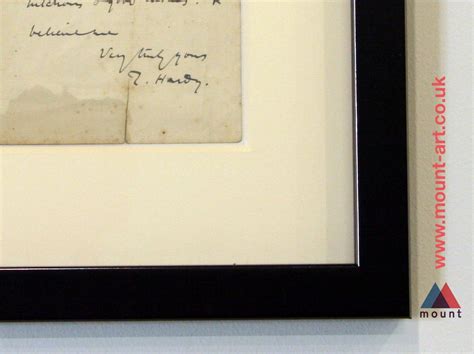 believe me
Very truly yours
T. Hardy.
www.mount-art.co.uk
mount